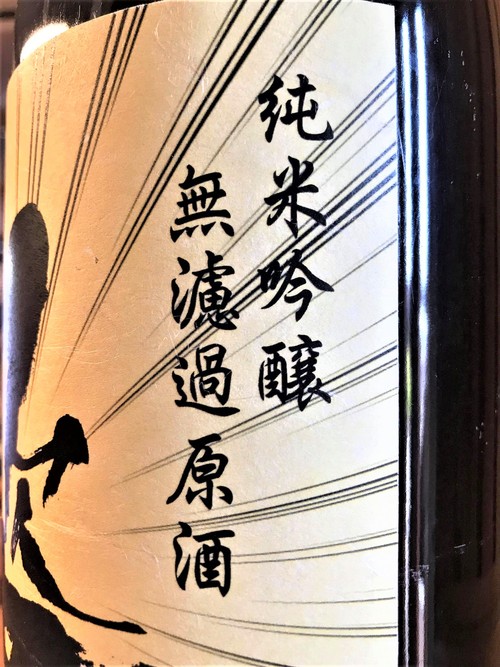 純米吟醸
無濾過原酒